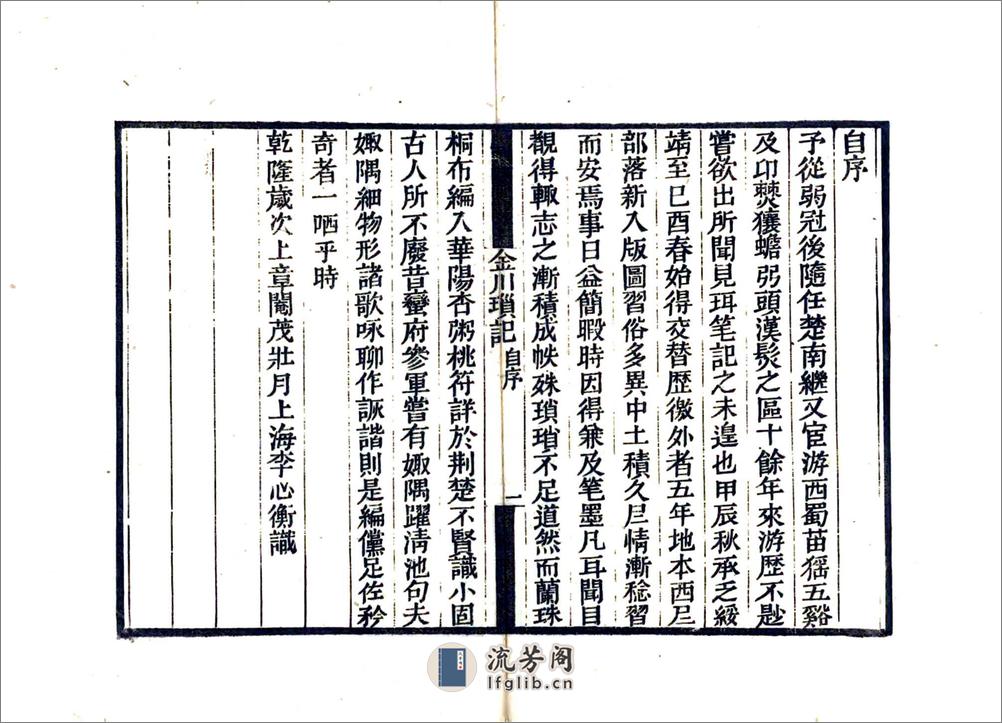 自序
予從弱冠後隨任楚南繼又宦游西蜀苗猺五谿
及卭僰獽蟾弜頭漢髳之區十餘年來游歷不尟
嘗欲出所聞見珥筆記之未遑也甲辰秋承乏綏
靖至己酉春始得交替歷徼外者五年地本西𡰥
部落新入版圖習俗多異中土積久𡰥情漸稔習
而安焉事日益簡暇時因得兼及笔墨凡耳聞目
覩得輒志之漸積成帙殊瑣瑣不足道然而蘭珠
金川瑣記 自序 一
桐布編入華陽杏粥桃符詳於荆楚不賢識小固
古人所不廢昔蠻府參軍嘗有娵隅躍淸池句夫
娵隅細物形諸歌咏聊作詼諧則是編儻足佐矜
奇者一哂乎時
乾隆歲次上章閹茂壯月上海李心衡識
流芳阁
lfglib.cn